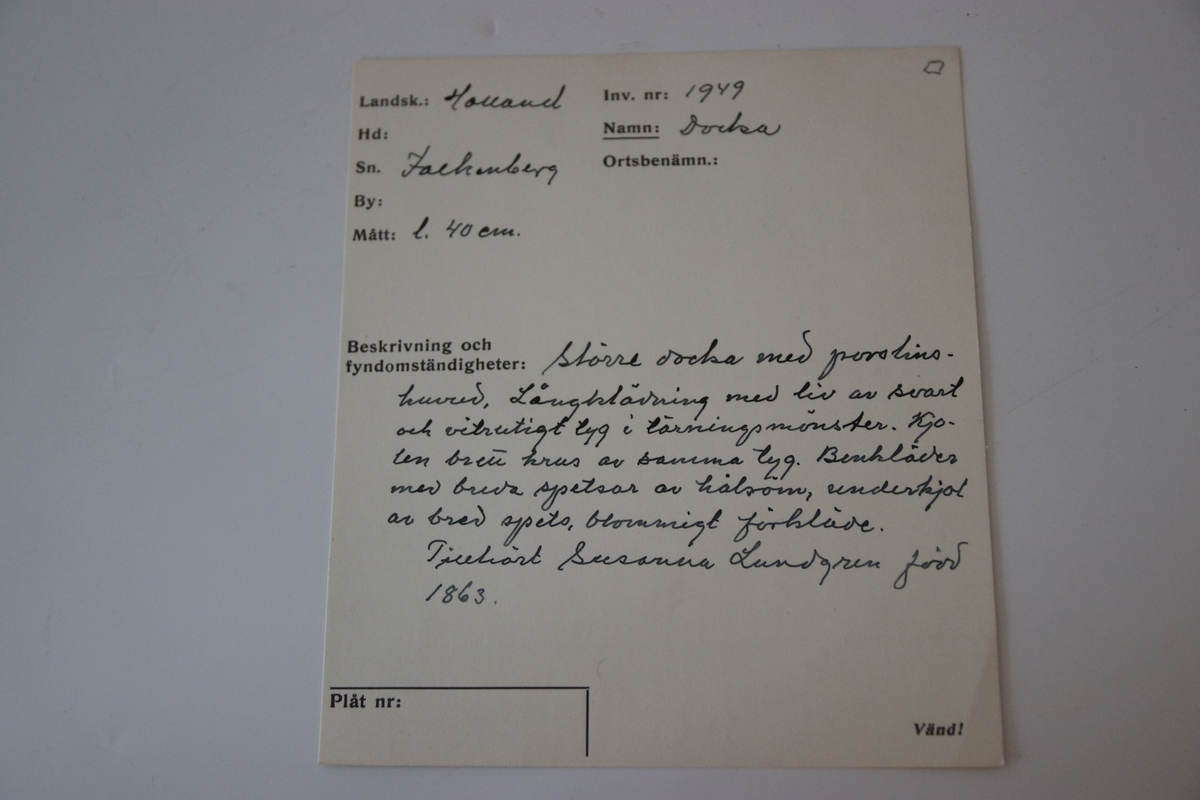 Landsk.: Halland Inv. nr: 1949
Hd: Namn: Docka
Sn. Falkenberg Ortsbenämn.:
By:
Mått: l. 40 cm.
Beskrivning och
fyndomständigheter: Större docka med porslins-
huvud, Långklädning med liv av svart
och vitrutigt tyg i tärningsmönster. Kjo-
len brett krus av samma tyg. Benkläder
med breda spetsar av hålsöm, underkjol
av bred spets, blommigt förkläde.
Tillhört Susanna Lundgren född
1863.
Plåt nr:
Vänd!